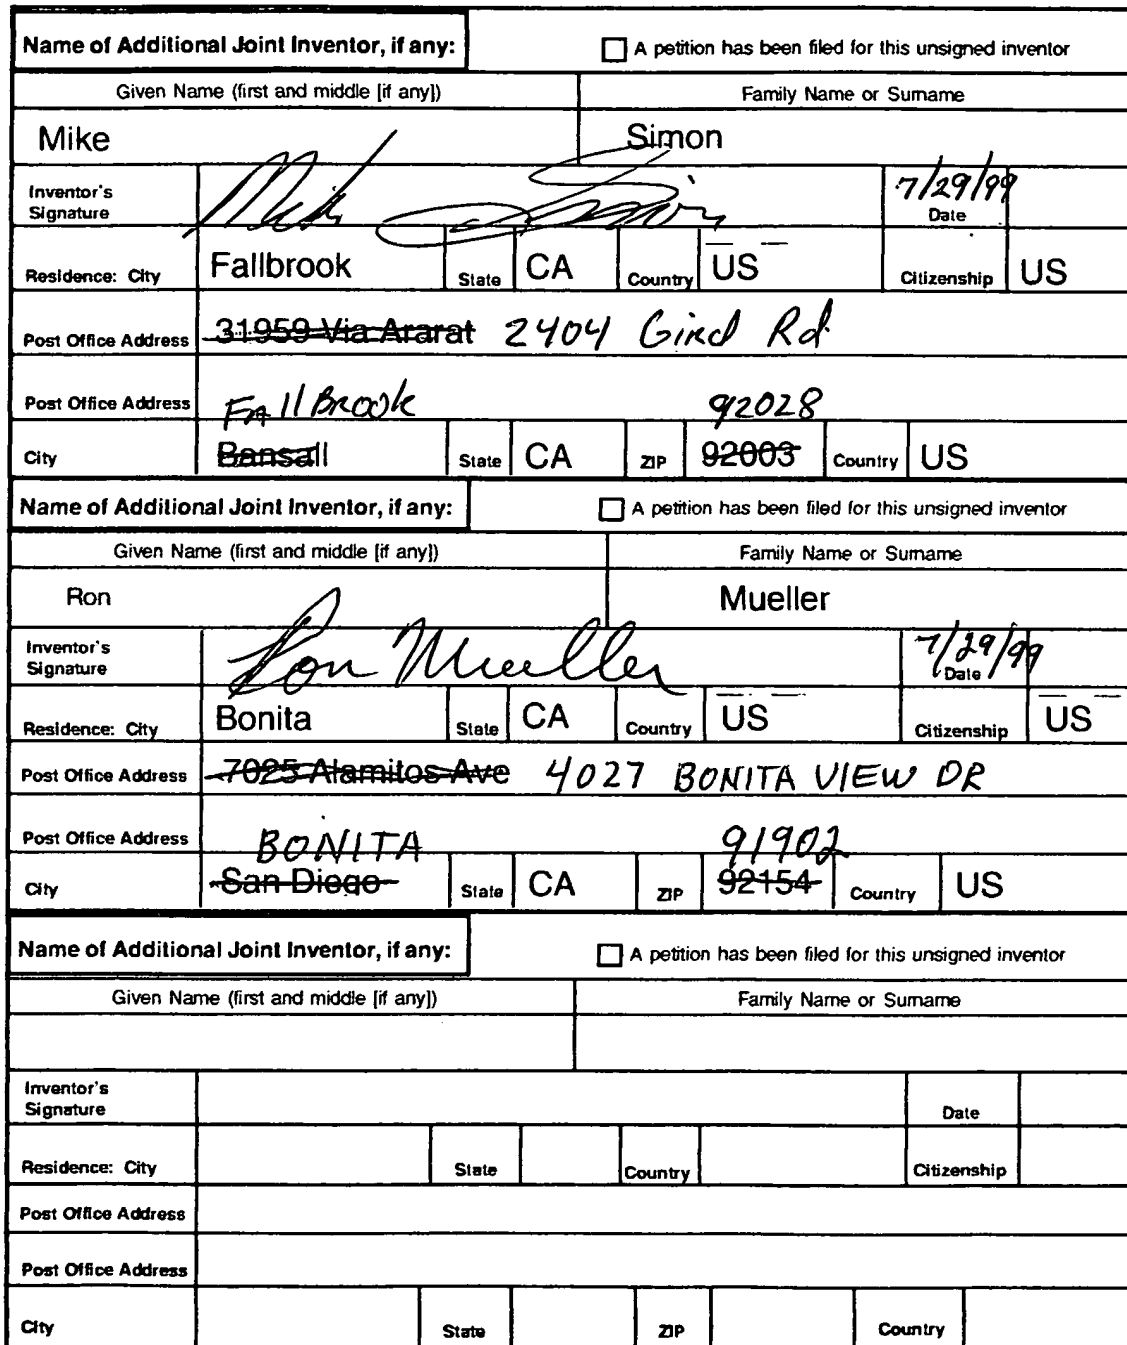 Name of Additional Joint Inventor, if any: A petition has been filed for this unsigned inventor
Given Name (first and middle [if any]) Family Name or Surname
Mike Simon
Inventor's Signature Mike Simon 7/29/99 Date
Residence: City Fallbrook State CA Country US Citizenship US
Post Office Address 31959 Via Ararat 2404 Gird Rd
Post Office Address FallBrook 92028
City Bansall State CA ZIP 92003 Country US
Name of Additional Joint Inventor, if any: A petition has been filed for this unsigned inventor
Given Name (first and middle [if any]) Family Name or Surname
Ron Mueller
Inventor's Signature Ron Mueller 7/29/99 Date
Residence: City Bonita State CA Country US Citizenship US
Post Office Address 7025 Alamitos Ave 4027 BONITA VIEW DR
Post Office Address BONITA 91902
City San Diego State CA ZIP 92154 Country US
Name of Additional Joint Inventor, if any: A petition has been filed for this unsigned inventor
Given Name (first and middle [if any]) Family Name or Surname
Inventor's Signature Date
Residence: City State Country Citizenship
Post Office Address
Post Office Address
City State ZIP Country